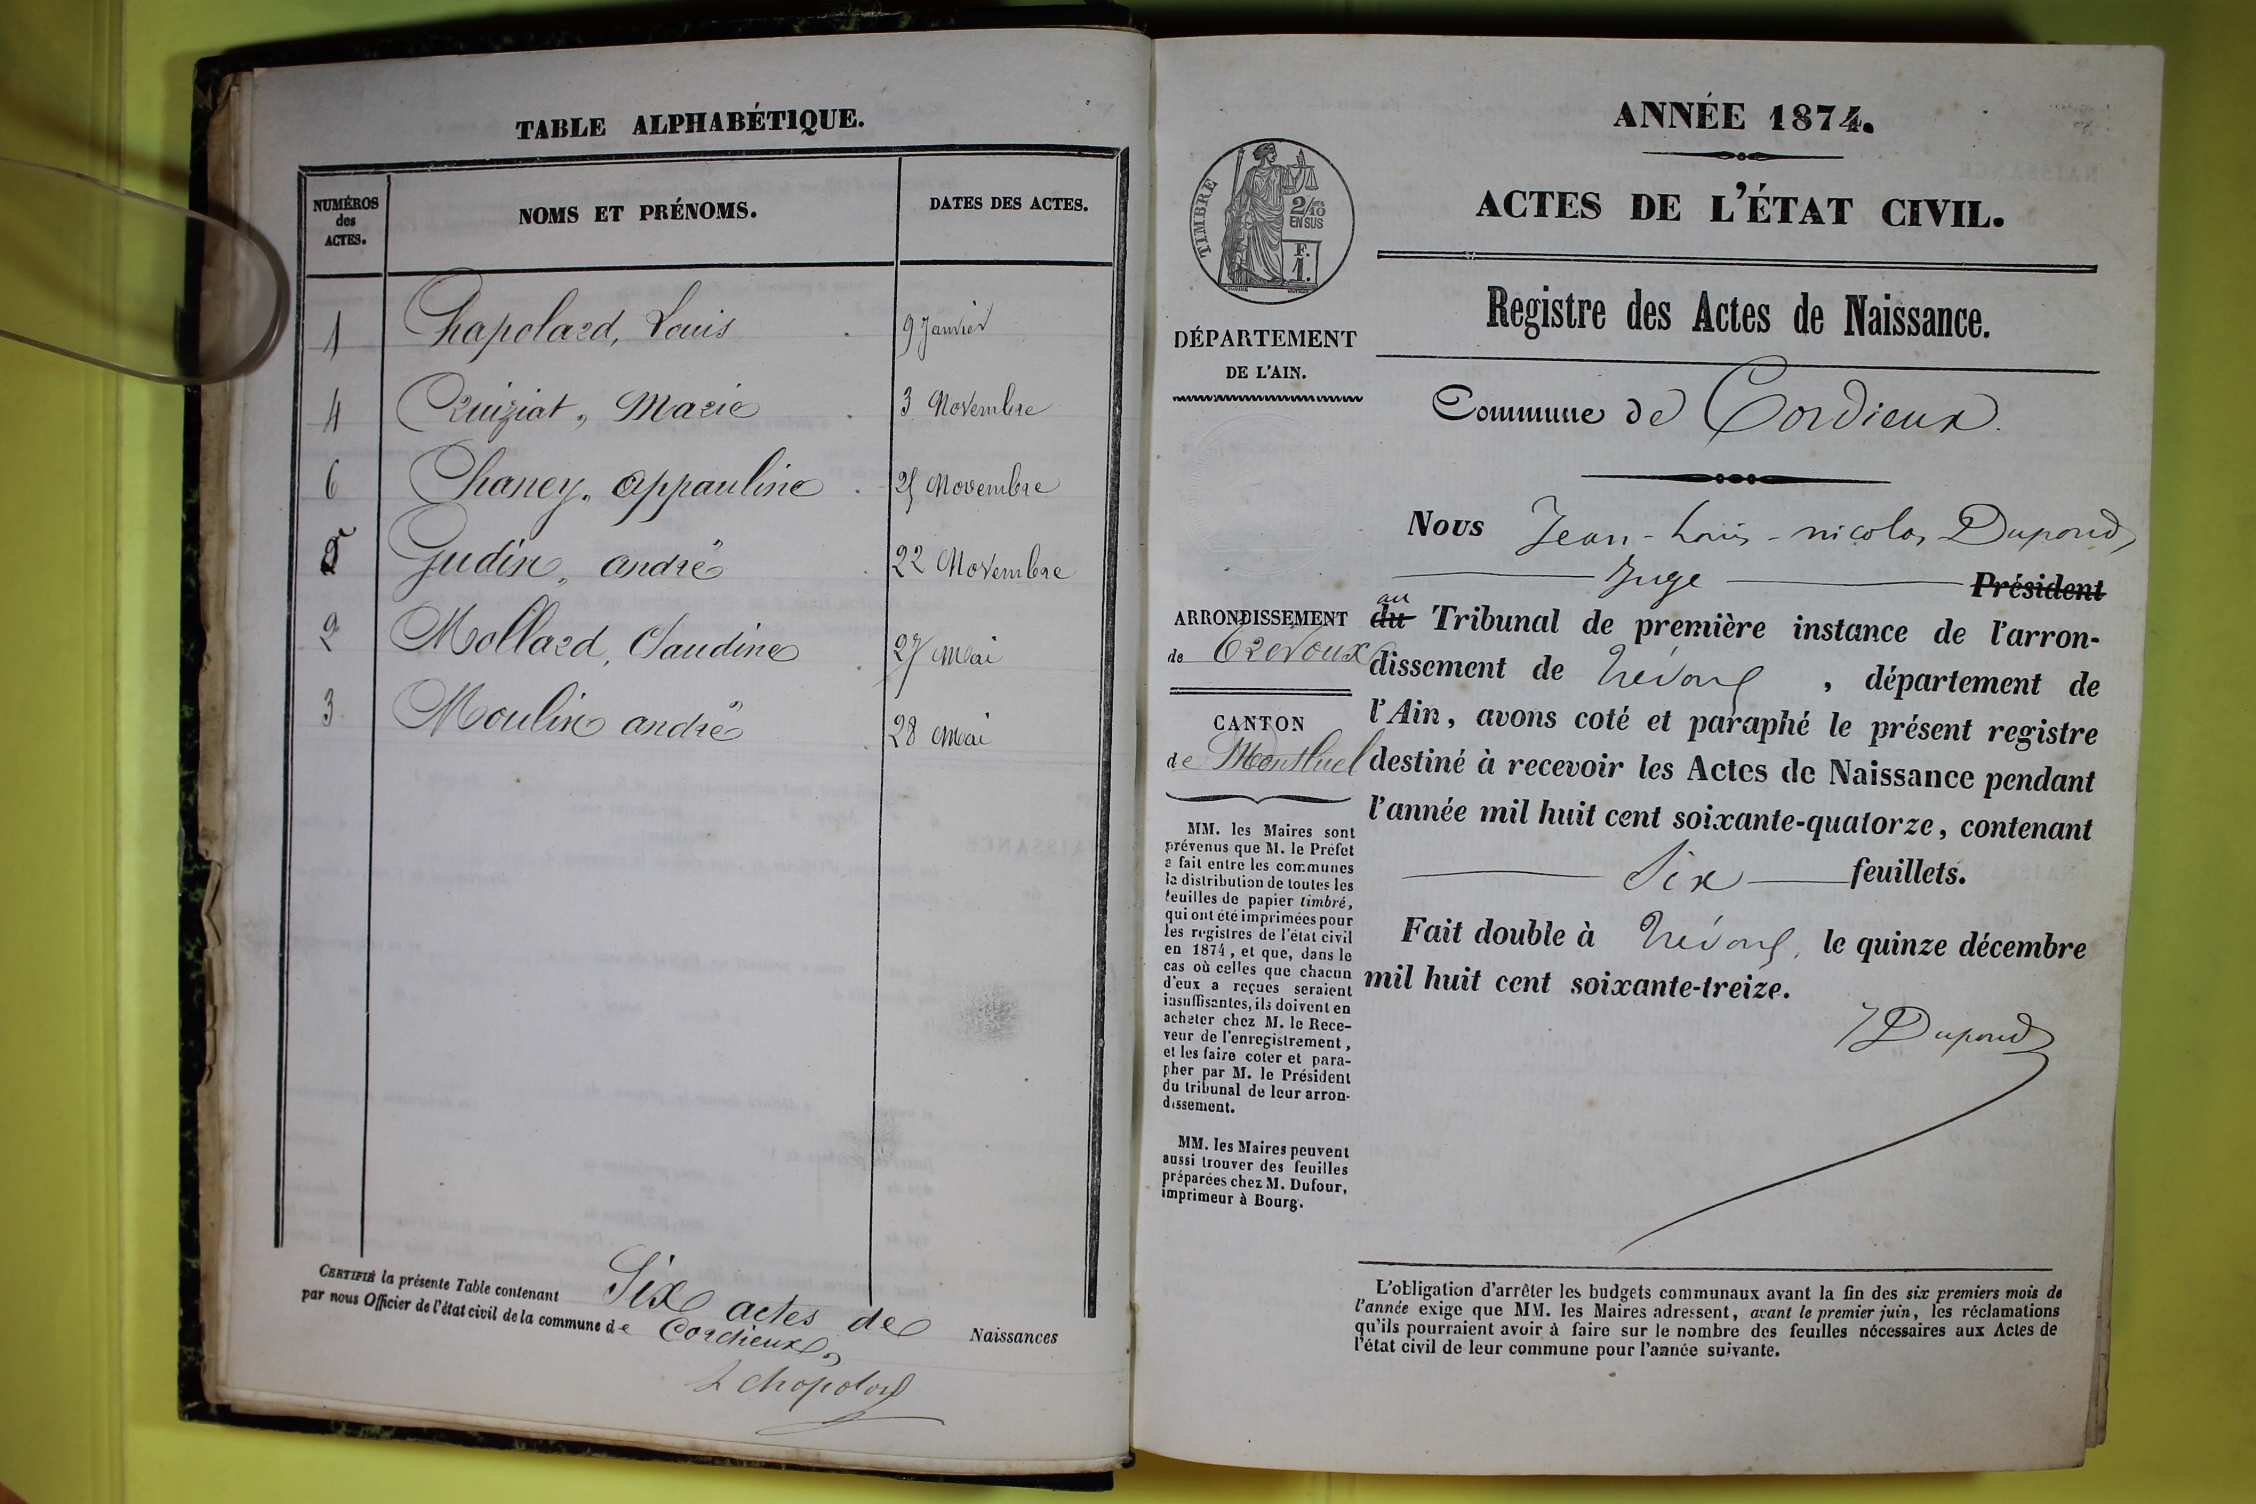 TABLE ALPHABÉTIQUE.
NUMÉROS
des
ACTES.
NOMS ET PRÉNOMS.
DATES DES ACTES.
1 Chapolard, Louis 9 Janvier
4 Cruiziat, Marie 3 Novembre
6 Chaney, appauline 25 Novembre
5 Gudin, andré 22 Novembre
2 Mollard, Claudine 27 Mai
3 Moulin andré 28 Mai
CERTIFIÉ la présente Table contenant Six actes de Naissances
par nous Officier de l'état civil de la commune de Cordieux,
L chapolard
ANNÉE 1874.
ACTES DE L'ÉTAT CIVIL.
TIMBRE
2/10
EN SUS
F.
1.
Registre des Actes de Naissance.
DÉPARTEMENT
DE L'AIN.
Commune de Cordieux.
Nous Jean-Louis-nicolas Dupond,
Juge Président
au
du Tribunal de première instance de l'arron-
dissement de Trévoux, département de
l'Ain, avons coté et paraphé le présent registre
destiné à recevoir les Actes de Naissance pendant
l'année mil huit cent soixante-quatorze, contenant
Six feuillets.
Fait double à Trévoux, le quinze décembre
mil huit cent soixante-treize.
JDupond
ARRONDISSEMENT
de Trévoux
CANTON
de Montluel
MM. les Maires sont
prévenus que M. le Préfet
a fait entre les communes
la distribution de toutes les
feuilles de papier timbré,
qui ont été imprimées pour
les registres de l'état civil
en 1874, et que, dans le
cas où celles que chacun
d'eux a reçues seraient
insuffisantes, ils doivent en
acheter chez M. le Rece-
veur de l'enregistrement,
et les faire coter et para-
pher par M. le Président
du tribunal de leur arron-
dissement.
MM. les Maires peuvent
aussi trouver des feuilles
préparées chez M. Dufour,
imprimeur à Bourg.
L'obligation d'arrêter les budgets communaux avant la fin des six premiers mois de
l'année exige que MM. les Maires adressent, avant le premier juin, les réclamations
qu'ils pourraient avoir à faire sur le nombre des feuilles nécessaires aux Actes de
l'état civil de leur commune pour l'année suivante.